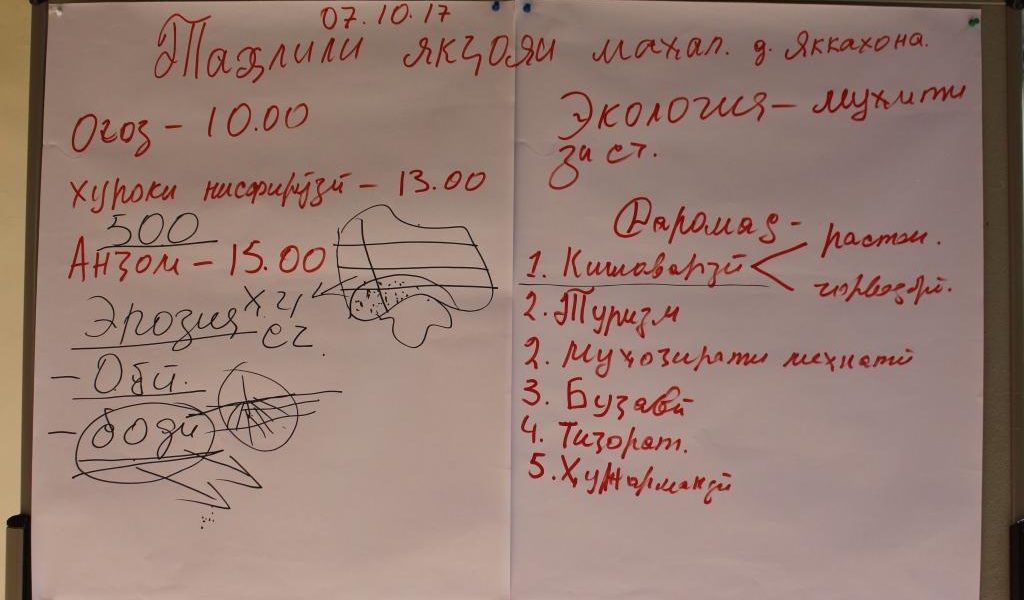 07.10.17
Таҳлили якҷояи маҳал. д. Яккахона.
Оғоз – 10.00
Хуроки нисфирӯзӣ – 13.00
500
Анҷом – 15.00
Эрозия
– Обӣ.
– бодӣ
Экология – муҳити
зист.
Даромад –
1. Кишоварзӣ
растан.
чорводорӣ.
2. Туризм
2. Муҳоҷирати меҳнатӣ
3. Буҷавӣ
4. Тиҷорат.
5. Ҳунармандӣ